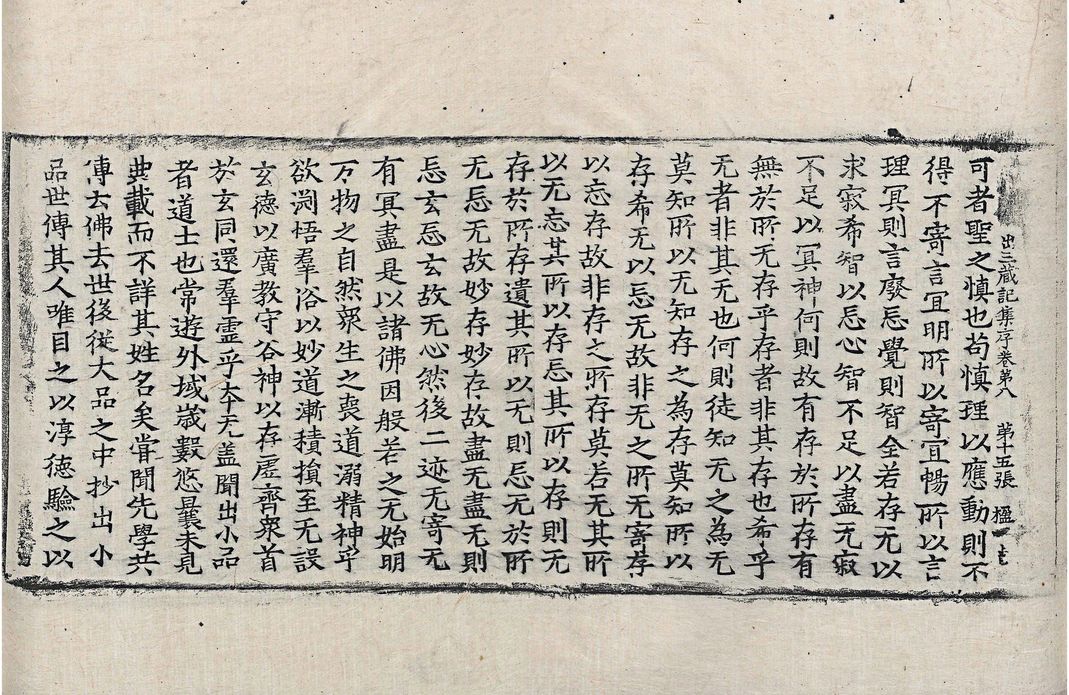 出三蔵記集序卷第八　第十五張　楹
可者聖之慎也苟慎理以應動則不
得不寄言宜明所以寄宜暢所以言
理冥則言廢忘覺則智全若存无以
求寂希智以忘心智不足以盡无寂
不足以冥神何則故有存於所存有
無於所无存乎存者非其存也希乎
无者非其无也何則徒知无之為无
莫知所以无知存之為存莫知所以
存希无以忘无故非无之所无寄存
以忘存故非存之所存莫若无其所
以无忘其所以存忘其所以存則无
存於所存遺其所以无則忘无於所
无忘无故妙存妙存故盡无盡无則
忘玄忘玄故无心然後二迹无寄无
有冥盡是以諸佛因般若之无始明
万物之自然衆生之喪道溺精神乎
欲渕悟羣俗以妙道漸積損至无設
玄德以廣教守谷神以存虛齊衆首
於玄同還羣靈乎本无盖聞出小品
者道士也常遊外域歲數悠曩未見
典載而不詳其姓名矣甞聞先學共
傳云佛去世後從大品之中抄出小
品世傳其人唯目之以淳德驗之以